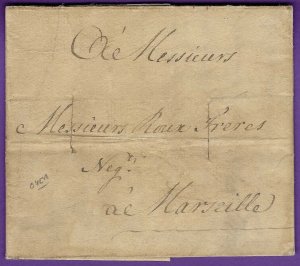 Aé Messieurs
Messieurs Roux Freres
Neg.ts
aé Marseille